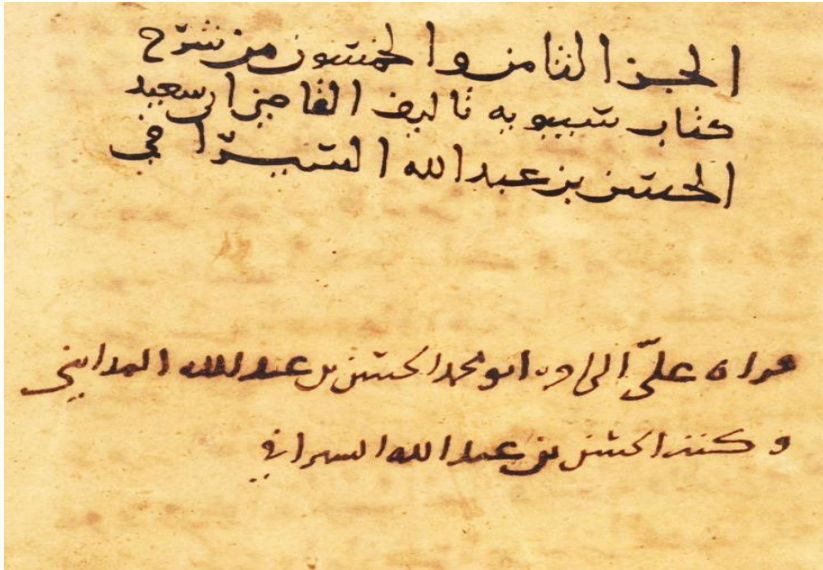 الجزء الثامن والخمسون من شرح
كتاب سيبويه تاليف القاضي ابي سعيد
الحسن بن عبد الله السيرافي
قراه علي الى ابو محمد الحسن بن عبد الله المدايني
وكتب الحسن بن عبد الله السيرافي